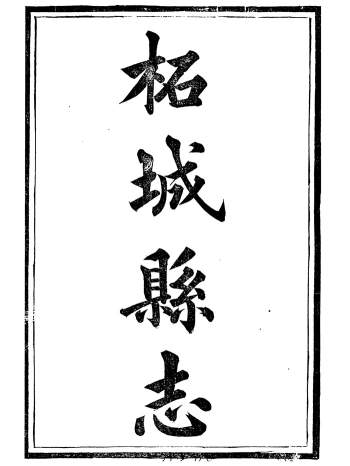 柘城縣志